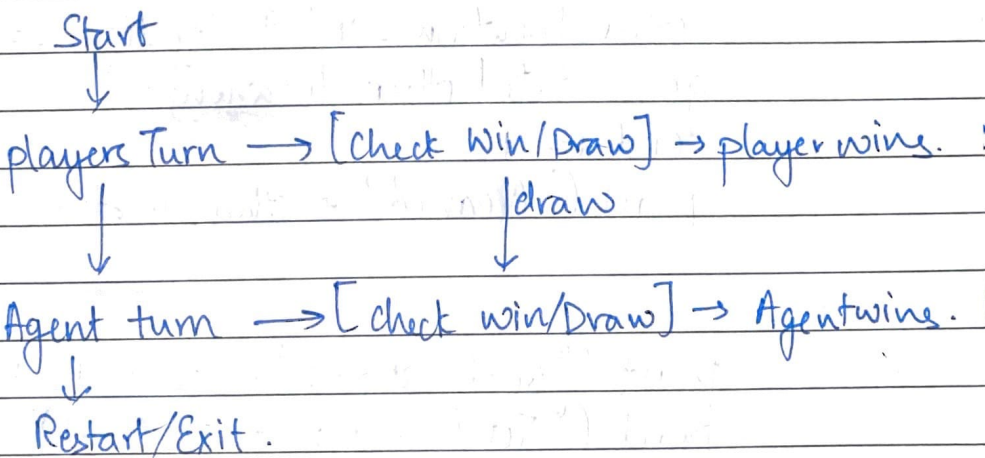 Start
↓
players Turn → [Check Win/Draw] → player wins.
↓ ↓ draw
Agent turn → [check win/Draw] → Agent wins.
↓
Restart/Exit.